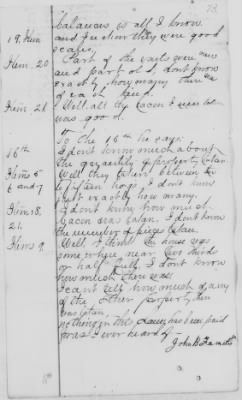 balances is all I know
and you know they were good
scales,
19. Item
Item. 20
Part of the sacks were new
and part old, dont know
exactly how many there
of each kind.
Item 21
Well, all the bacon I
was good.
To the 16th he says:
16th
I dont know much about
the quantity of property taken
Items 5
6 and 7
Well they taken between
fifteen hogs, I dont know
just exactly how many.
Items 8.
I dont know how much
bacon was taken. I dont know
21.
the number of pieces taken.
Items 9.
Well I think the house was
some where near two thirds
or half full, I dont know
how much there was
I cant tell how much of any
of the other property there
was taken,
nothing in the has been paid
I ever heard of.
John B.